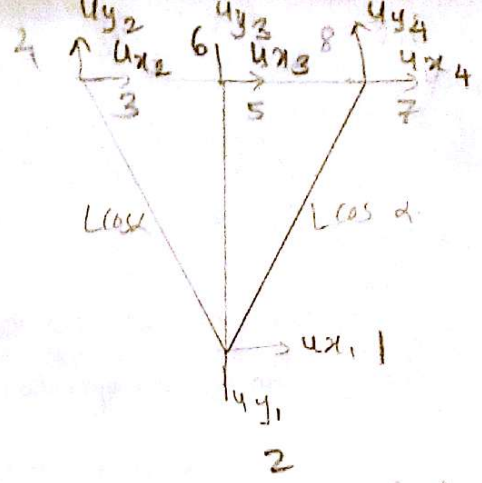 uy2 uy3 uy4
4 ux2 6 ux3 8 ux4
3 5 7
Lcosα Lcos α
ux1 1
uy1
2